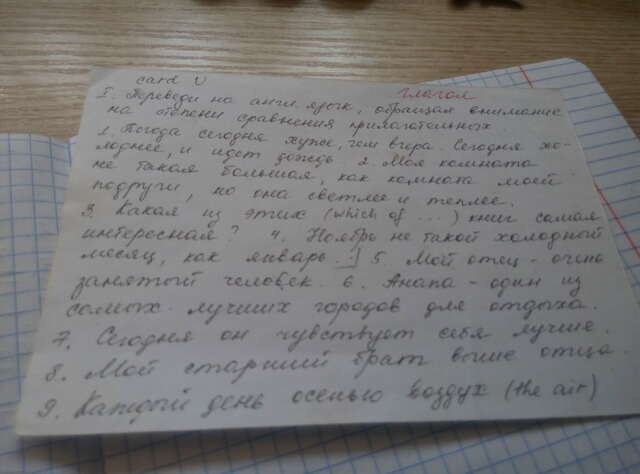 card V
глагол
I. Переведи на англ. язык, обращая внимание
на степени сравнения прилагательных.
1. Погода сегодня хуже, чем вчера. Сегодня хо-
лоднее, и идет дождь. 2. Моя комната
не такая большая, как комната моей
подруги, но она светлее и теплее.
3. Какая из этих (which of ...) книг самая
интересная? 4. Ноябрь не такой холодный
месяц, как январь. 5. Мой отец - очень
занятый человек. 6. Анапа - один из
самых лучших городов для отдыха.
7. Сегодня он чувствует себя лучше.
8. Мой старший брат выше отца.
9. Каждый день осенью воздух (the air)